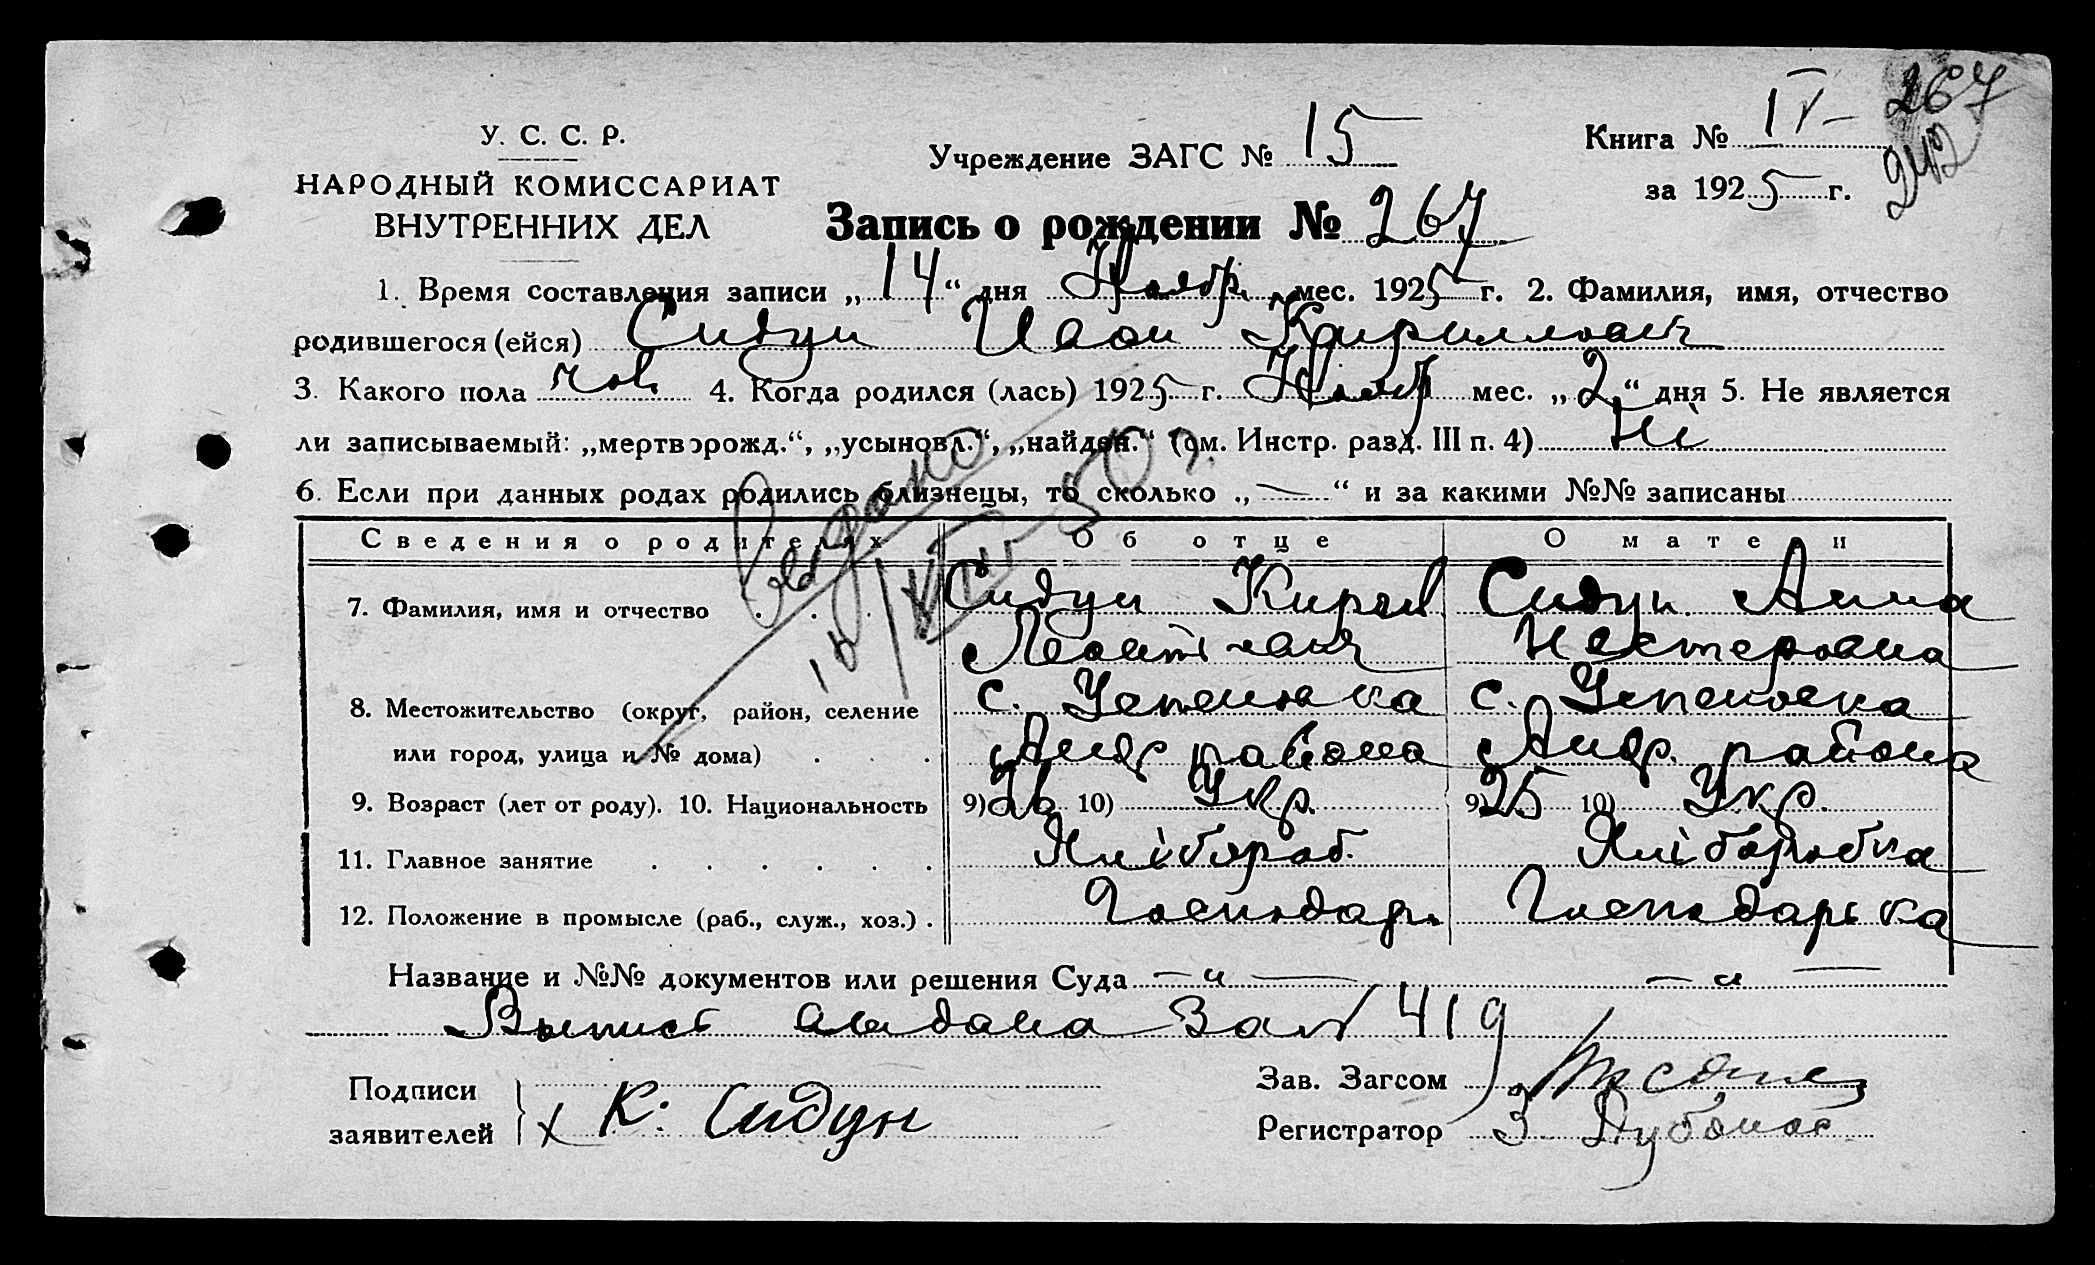 267
242
У. С. С. Р.
НАРОДНЫЙ КОМИССАРИАТ
ВНУТРЕННИХ ДЕЛ
Учреждение ЗАГС № 15
Книга № IV
за 1925 г.
Запись о рождении № 267
1. Время составления записи „14“ дня Ноябр. мес. 1925 г. 2. Фамилия, имя, отчество
родившегося (ейся) Сидун Иван Кириллович
3. Какого пола чол. 4. Когда родился (лась) 1925 г. Ноябр мес. „2“ дня 5. Не является
ли записываемый: „мертворожд.“, „усыновл.“, „найден.“ (см. Инстр. разд. III п. 4) Ні
6. Если при данных родах родились близнецы, то сколько „—“ и за какими №№ записаны
Сведения о родителях Об отце О матери
7. Фамилия, имя и отчество Сидун Сидун Анна
Нестеровна
8. Местожительство (округ, район, селение с. Успеновка с. Успеновка
или город, улица и № дома) Андр района Андр. района
9. Возраст (лет от роду). 10. Национальность 9) 26 10) Укр. 9) 25 10) Укр.
11. Главное занятие Хлібороб. Хліборобка
12. Положение в промысле (раб., служ., хоз.) Господарь Господарька
Название и №№ документов или решения Суда — „ — — „ —
Выпись За № 419
Подписи
заявителей К. Сидун
Зав. Загсом
Регистратор